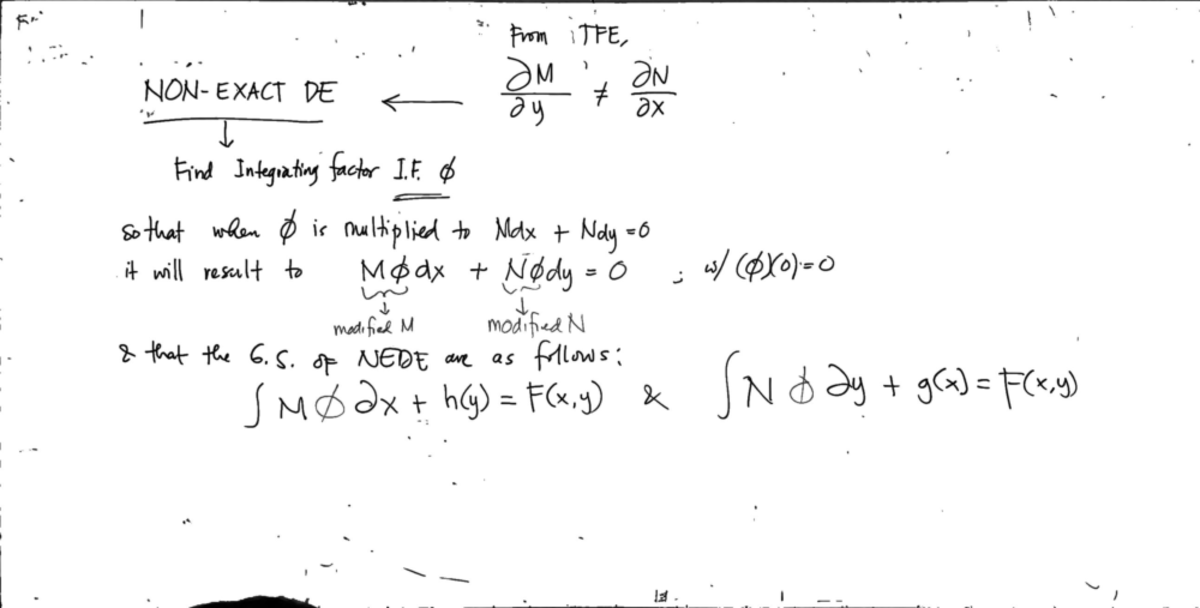 From iTFE,
∂M/∂y ≠ ∂N/∂x
NON-EXACT DE ←
↓
Find Integrating factor I.F. ϕ
so that when ϕ is multiplied to Mdx + Ndy = 0
it will result to Mϕdx + Nϕdy = 0 ; w/ (ϕ)(0) = 0
↓ ↓
modified M modified N
& that the G.S. of NEDE are as follows:
∫Mϕ∂x + h(y) = F(x,y) & ∫Nϕ∂y + g(x) = F(x,y)